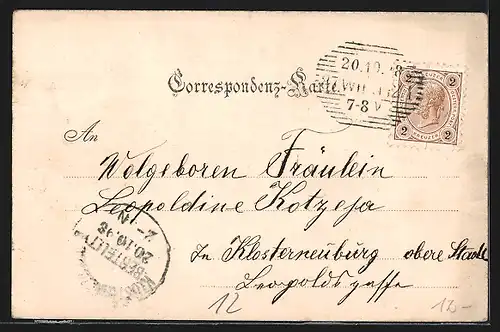 Correspondenz-Karte.
20.10.98
WIEN
7-8 V
2 2
KREUZER
An
Wolgeboren Fräulein
Leopoldine Kotzeja
In Klosterneuburg obere Stadt
Leopoldsgasse
BESTELLT
20.10.98
2-N
12
12.-